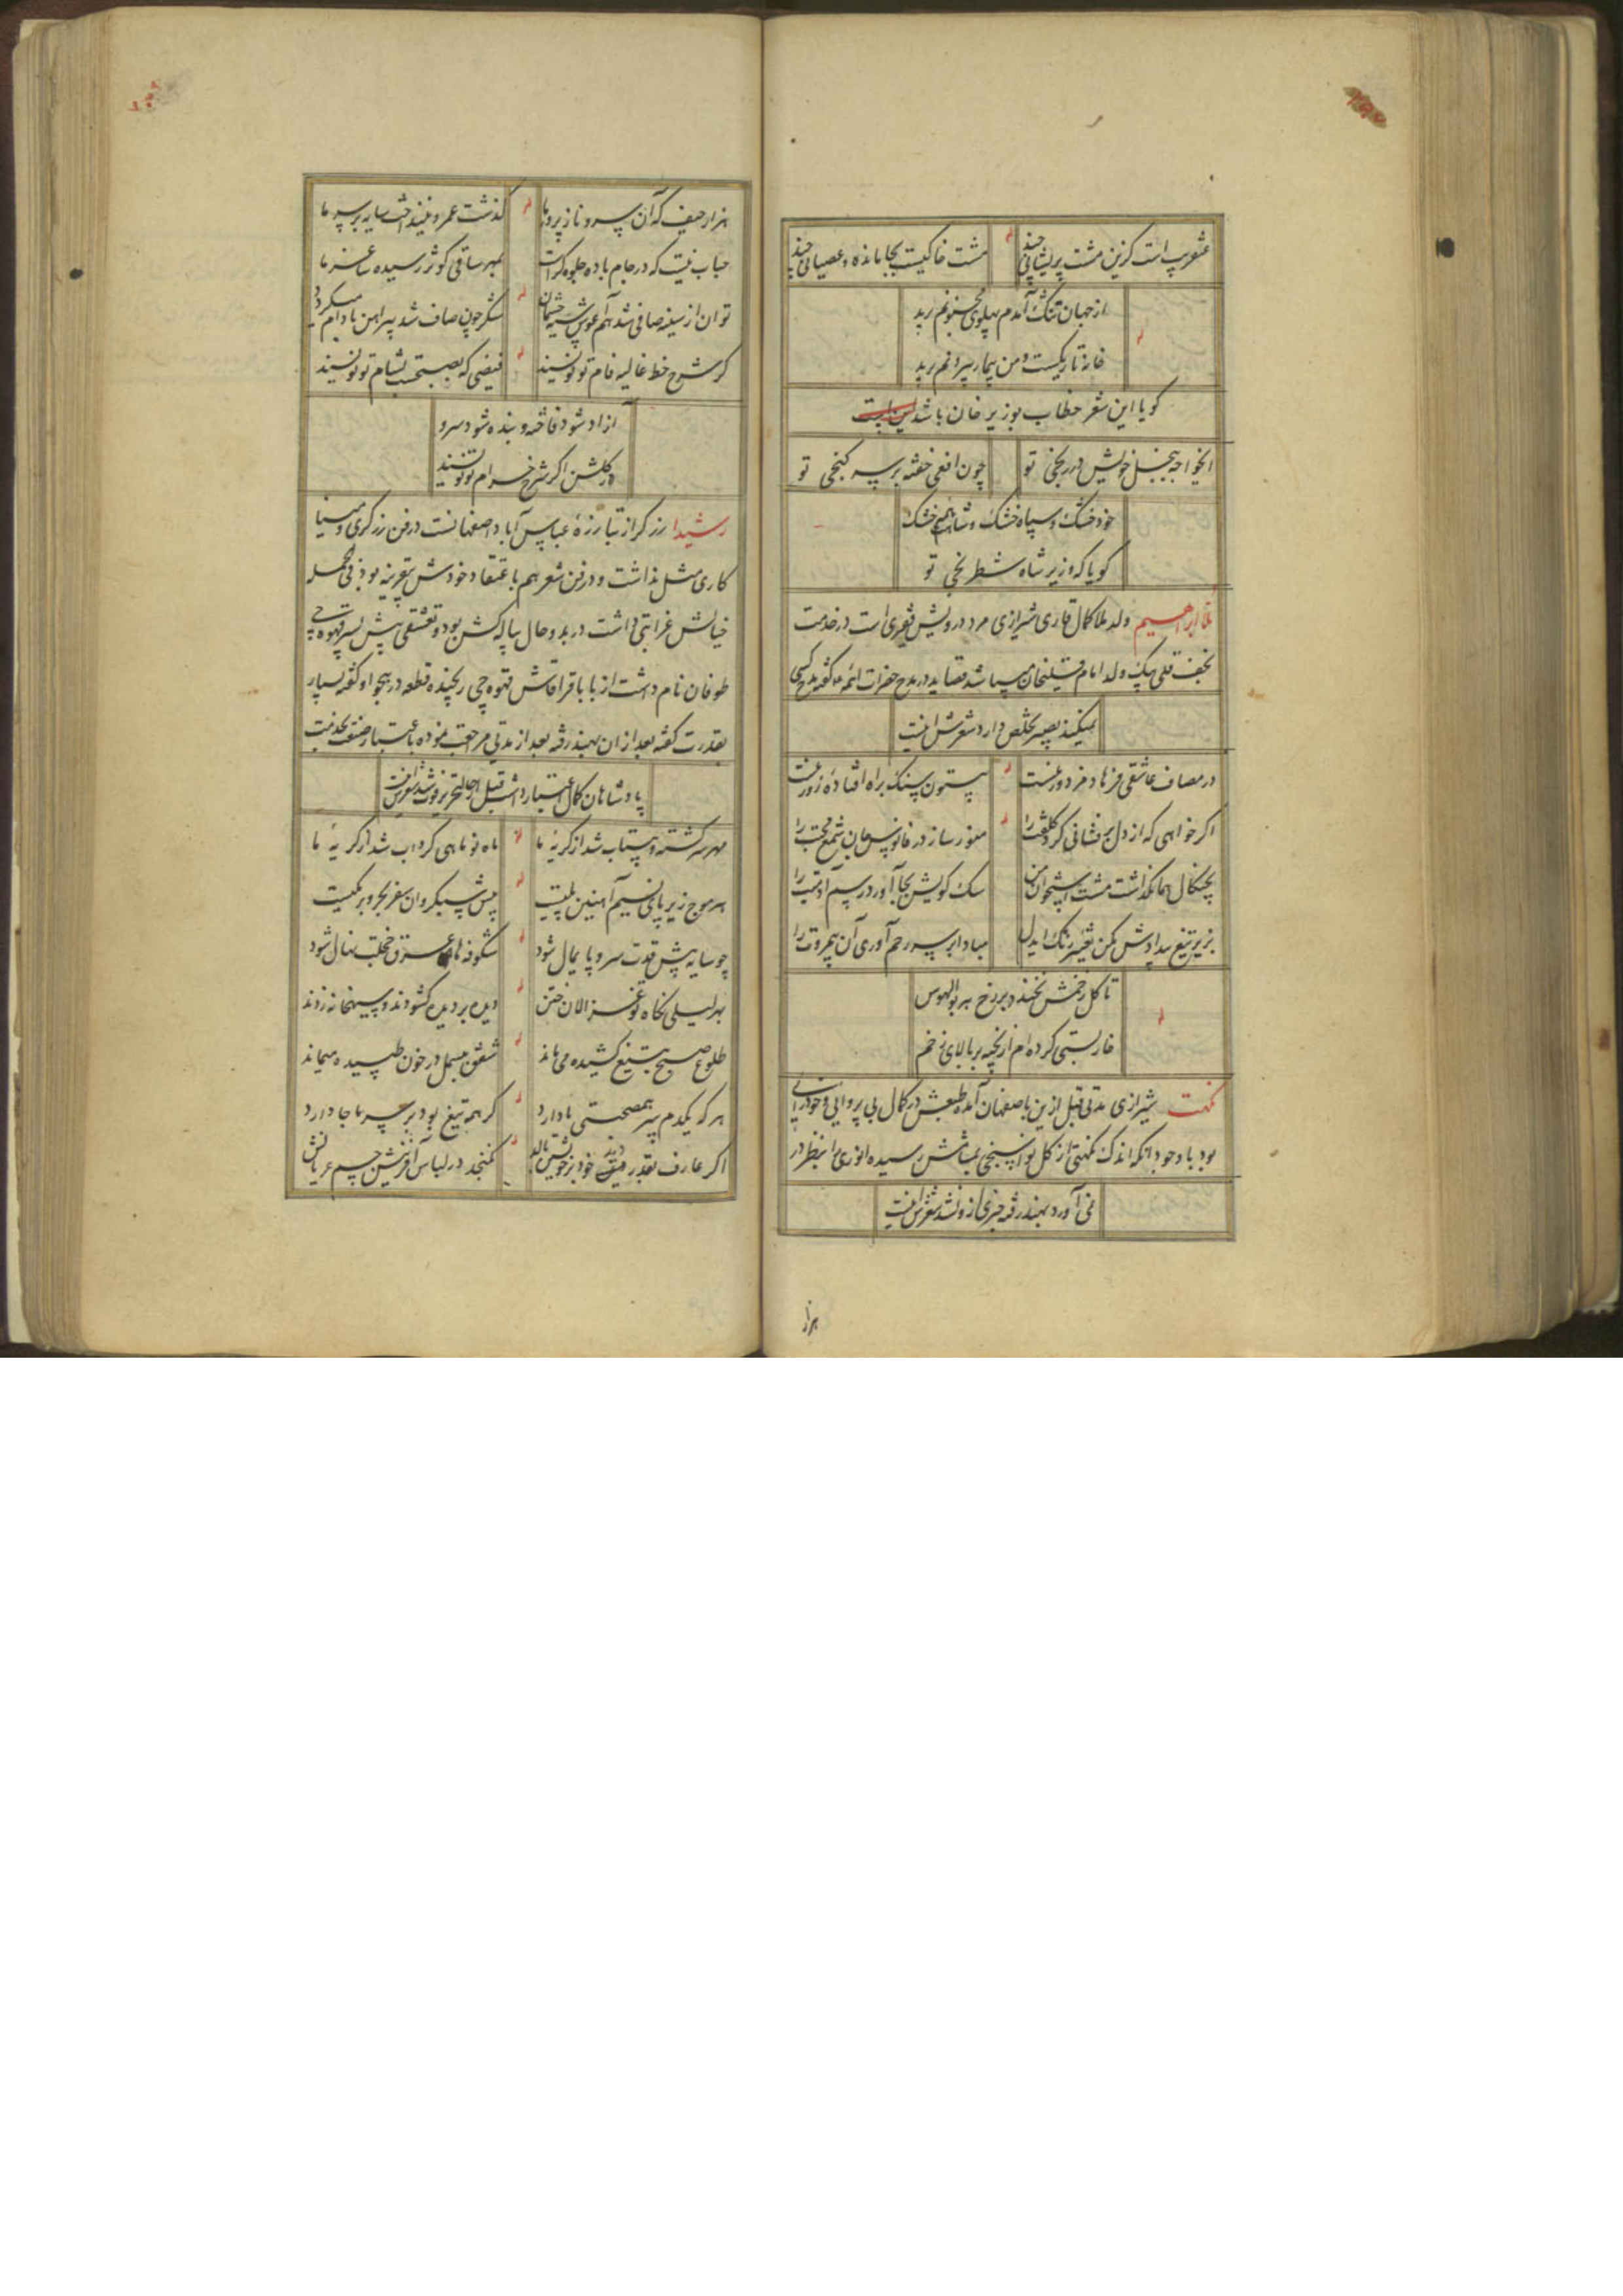 عنقریب است کزین مشت پریشانی چند
مشت خاکیست بجا مانده و عصیانی چند
از جهان تنگ آمدم پهلوی مجنونم برید
خانه تاریکست و من بیمار بیرونم برید
کویا این شعر خطاب بوزیر خان باشد
ایخواجه ببخل خویش در رنجی تو
چون افعی خفته بر سر کنجی تو
خود خشک و سپاه خشک و شاهی خشک
کویا که وزیر شاه شطرنجی تو
ملا ابراهیم ولد ملا کمال قاری شیرازی مرد درویش فقیری است در خدمت
نجف قلی بیک ولد امام قلیخان میباشد قصاید در مدح حضرات ائمه گفته مدح کسی
نمیکند بصیر تخلص دارد شعرش اینست
در مصاف عاشقی فرهاد مرد دور نیست
بیستون سنک براه افتاده زور نیست
اکر خواهی که از دل برفشانی کرد کلفت را
منور ساز در فانوس جان شمع محبت را
بچنکال هما نکذاشت مشت استخوان من
سک کویش بجا آورد رسم آدمیت را
بزیر تیغ بیدادش مکن تغییر رنک ایدل
مبادا بر سر رحم آوری آن بیمروت را
تا کل زخمش نخندد بر رخ هر بوالهوس
خاربستی کرده ام از بخیه بر بالای زخم
نکهت شیرازی مدتی قبل ازین باصفهان آمده طبعش در کمال بی پروایی و خودرایی
بود با وجود انکه اندک نکهتی از کل نواسنجی بمشامش رسیده انوری را بنظر در
نمی آورد بهند رفته خبری ازو نشد شعرش اینست
هزار
هزار حیف که آن سرو ناز پرور ما
کذشت عمر و نینداخت سایه بر سر ما
حباب نیست که در جام باده جلوه کراست
بمهر ساقی کوثر رسیده ساغر ما
توان از سینه صافی شد هم آغوش سیه چشمان
شکر چون صاف شد پیراهن بادام میکردد
کر شرح خط غالیه فام تو نویسند
فیضی که بصبحست بشام تو نویسند
آزاد شود فاخته و بنده شود سرو
در کلشن اکر شرح خرام تو نویسند
رشیدا زرکر از تبارزهٔ عباس آباد اصفهانست در فن زرکری و مینا
کاری مثل نداشت و در فن شعر هم باعتقاد خودش بیقرینه بود فی الجمله
خیالش غرابتی داشت در بدو حال پیاله کش بود و تعشقی پیش پسر قهوه چی
طوفان نام داشت از بابا قراقاش قهوه چی رنجیده قطعه در هجو او گفته بسیار
بقدرت کفته بعد از ان بهند رفته بعد از مدتی مراجعت نموده باعتبار صنعت بخدمت
پادشاهان کمال اعتبار داشت قبل از حال تحریر فوت شد شعرش اینست
مهر سرکشته و بیتاب شد از کریهٔ ما
ماه نو ماهی کرداب شد از کریهٔ ما
هر موج زیر پای نسیم آهنین پلیست
پیش سبکروان سفر بحر و بر یکیست
چو سایه پیش قدت سرو پایمال شود
شکوفه ها عرق خجلت نهال شود
بهر لیلی نکاه تو غزالان ختن
دیده بر دیده کشودند و سیهخانه زدند
طلوع صبح بتیغ کشیده می ماند
شفق ببسمل در خون طپیده میماند
هر که یکدم سر همصحبتی ما دارد
کر همه تیغ بود بر سر ما جا دارد
اکر عارف بقدر فیض خود بر خویشتن بالد
نکنجد در لباس آفرینش جسم عریانش